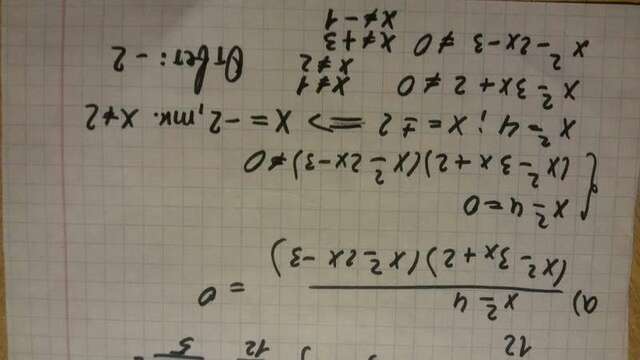 12 12 5
а) x² - 4
(x² - 3x + 2)(x² - 2x - 3) = 0
x² - 4 = 0
(x² - 3x + 2)(x² - 2x - 3) ≠ 0
x² = 4; x = ± 2 => x = -2, т.к. x ≠ 2
x² - 3x + 2 ≠ 0 x ≠ 1
x ≠ 2
x² - 2x - 3 ≠ 0 x ≠ +3
x ≠ -1
Ответ: -2